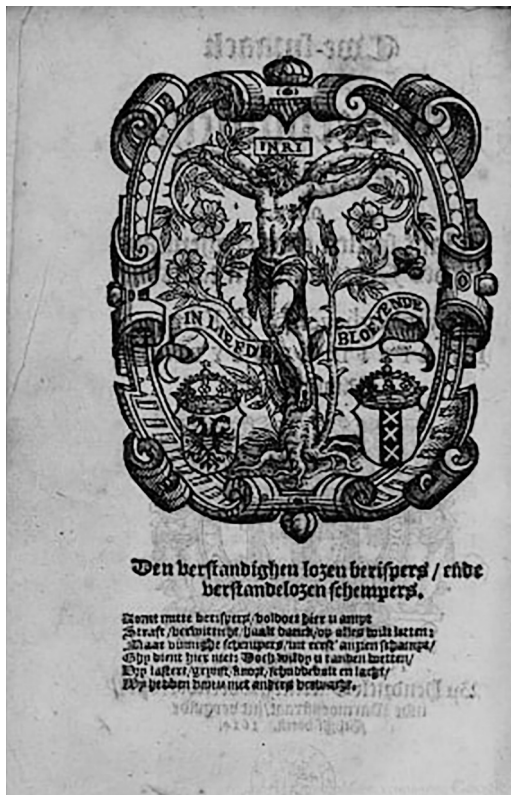 INRI
IN LIEFD BLOEYENDE
Den verstandighen lozen berispers / eñde
verstandelozen schempers.
Komt nutte berispers / voldoet hier u ampt
Straft / bericht / haalt danck / op alles wilt letten:
Maar vinnighe schempers / uit eerst anzien schampt /
Ghy dient hier niet: Doch wildy u tanden wetten /
Vry lastert / grijnst / knort / schuddebolt en lacht /
Wy hebben van u niet anders verwacht.